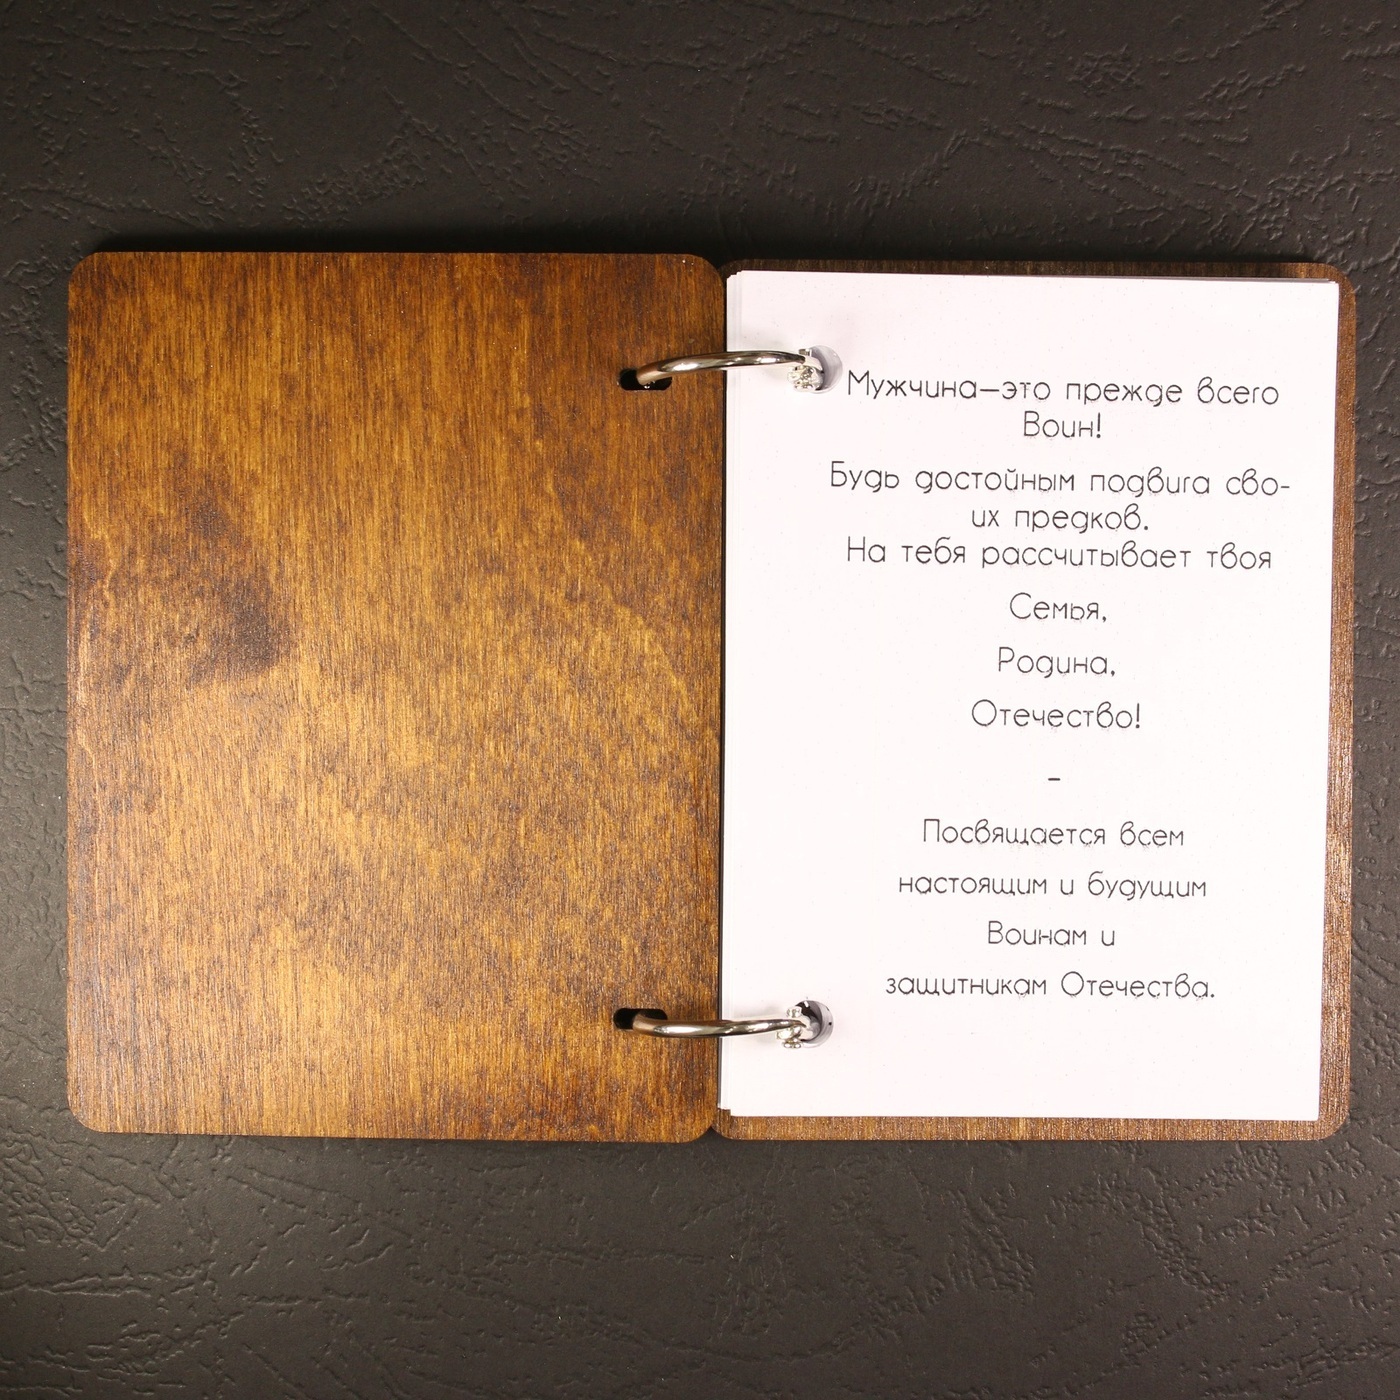 Мужчина—это прежде всего
Воин!
Будь достойным подвига сво-
их предков.
На тебя рассчитывает твоя
Семья,
Родина,
Отечество!
-
Посвящается всем
настоящим и будущим
Воинам и
защитникам Отечества.